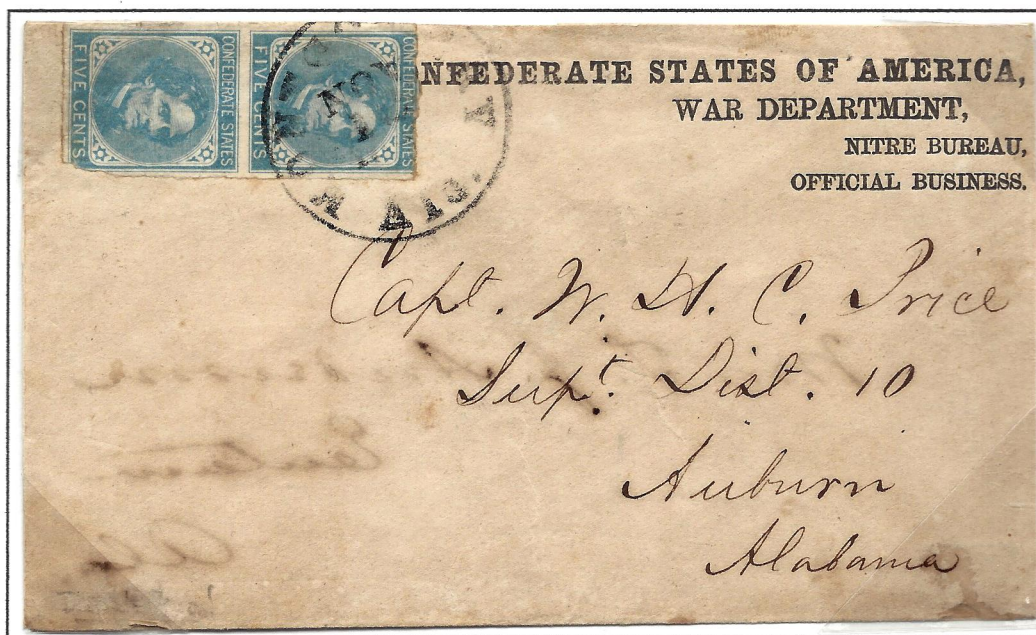 CONFEDERATE STATES
FIVE CENTS
CONFEDERATE STATES
FIVE CENTS
NOV
ALA.
NFEDERATE STATES OF AMERICA,
WAR DEPARTMENT,
NITRE BUREAU,
OFFICIAL BUSINESS.
Capt. W. H. C. Price
Supt. Dist. 10
Auburn
Alabama